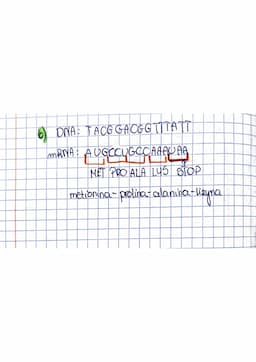 6) DNA: TACGGACGGTTTATT
mRNA: AUGCCUGCCAAAUAA
MET PRO ALA LYS STOP
metionina-prolina-alanina-lizyna